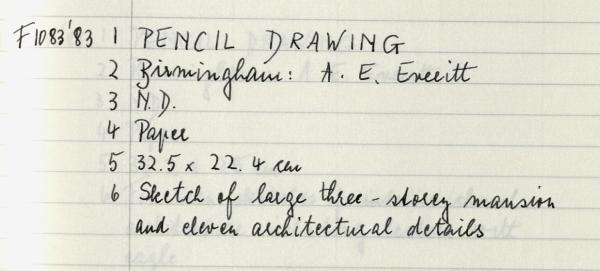 F1083'83 1 PENCIL DRAWING
2 Birmingham: A. E. Everitt
3 N.D.
4 Paper
5 32.5 x 22.4 cm
6 Sketch of large three-storey mansion
and eleven architectural details